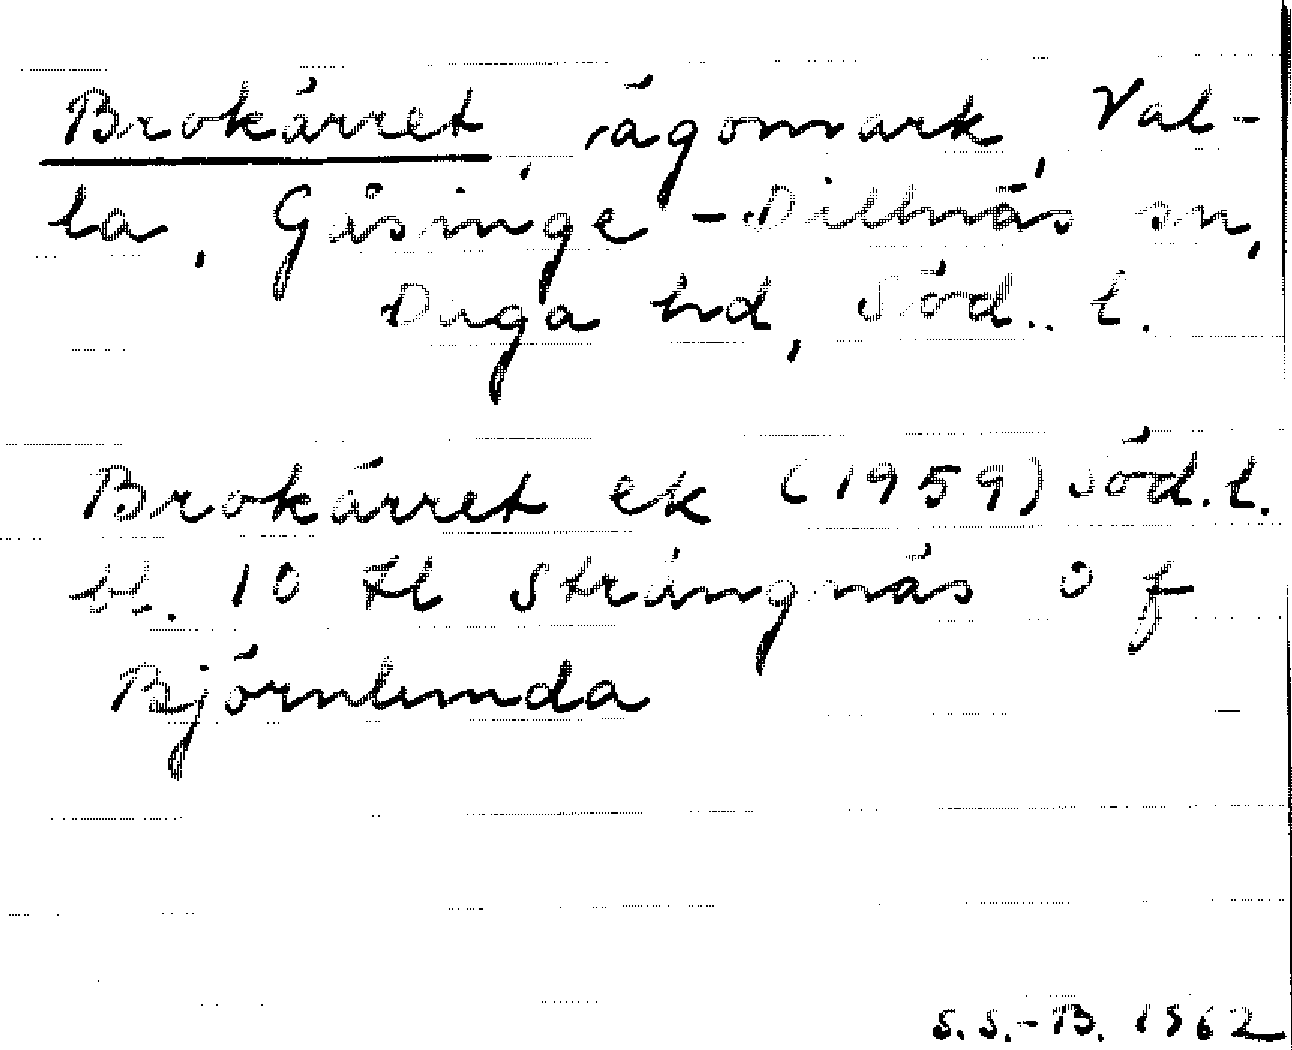 Brokärret, ägomark, Val-
la, Gåsinge-Dillnäs sn,
Daga hd, Söd. l.
Brokärret ek (1959) Söd. l.
bl. 10 H Strängnäs o f
Björnlunda
S.S.-B. 1962